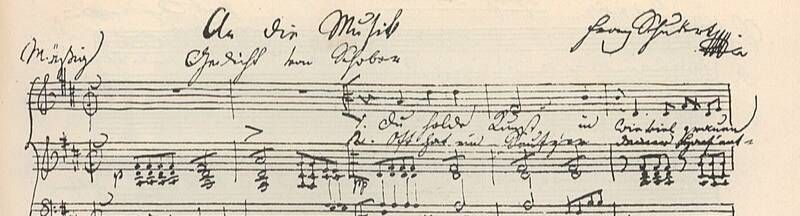 An die Musik
Franz Schubert
Mäßig
Gedicht von Schober
1. Du holde Kunst in wieviel grauen
2. Oft hat ein Seufzer deiner Harf ent-
p
pp